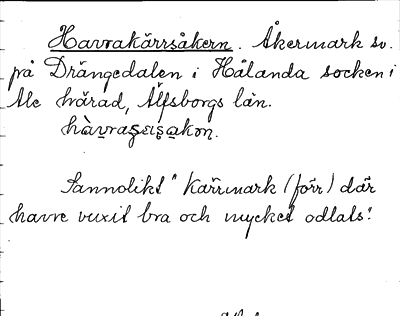 Havrakärrsåkern. Åkermark sv.
på Drängedalen i Hålanda socken i
Ale härad, Älfsborgs län.
Sannolikt "Kärrmark (förr) där
havre vuxit bra och mycket odlats."